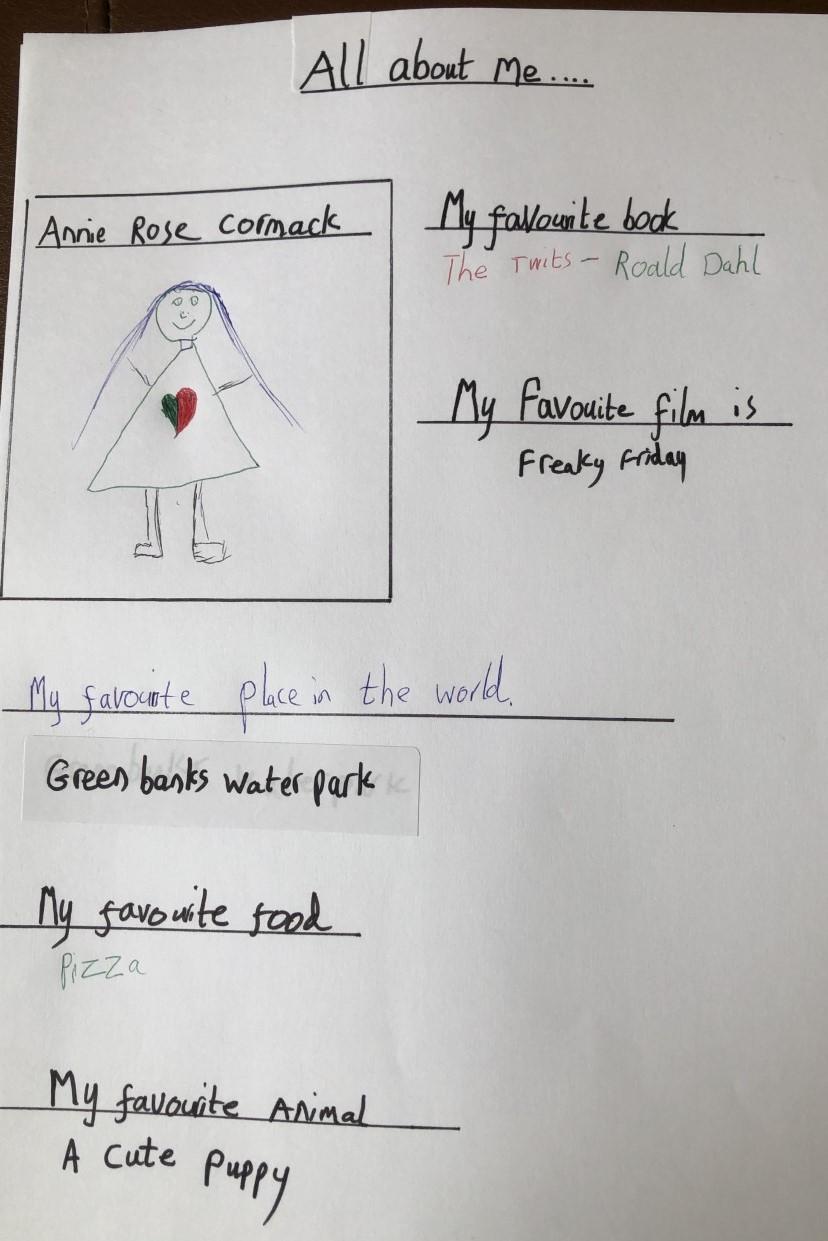 All about me....
Annie Rose Cormack
My favourite book
The Twits - Roald Dahl
My Favouite film is
Freaky Friday
My favourite place in the world.
Green banks water park
My favourite food
Pizza
My favourite Animal
A cute puppy